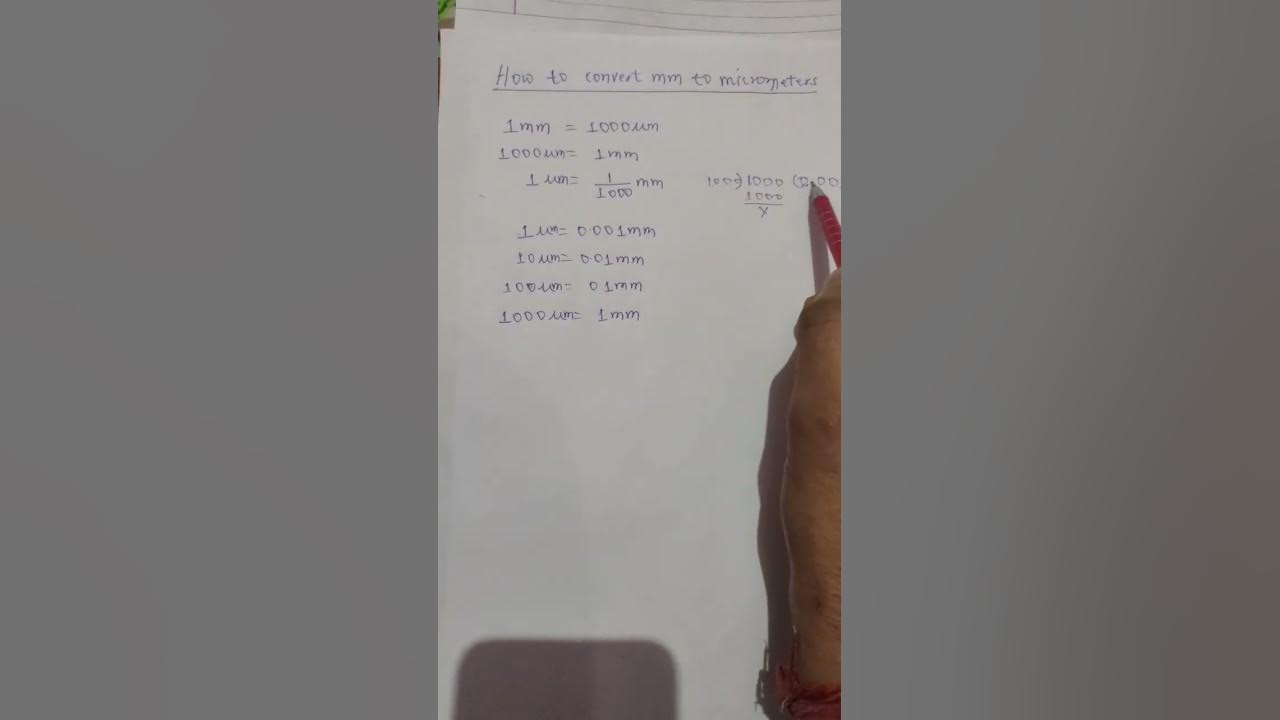 How to convert mm to micrometers
1mm = 1000um
1000um= 1mm
1um= 1/1000 mm
1000)1000 (0.00
1000
x
1um= 0.001mm
10um= 0.01mm
100um= 01mm
1000um= 1mm